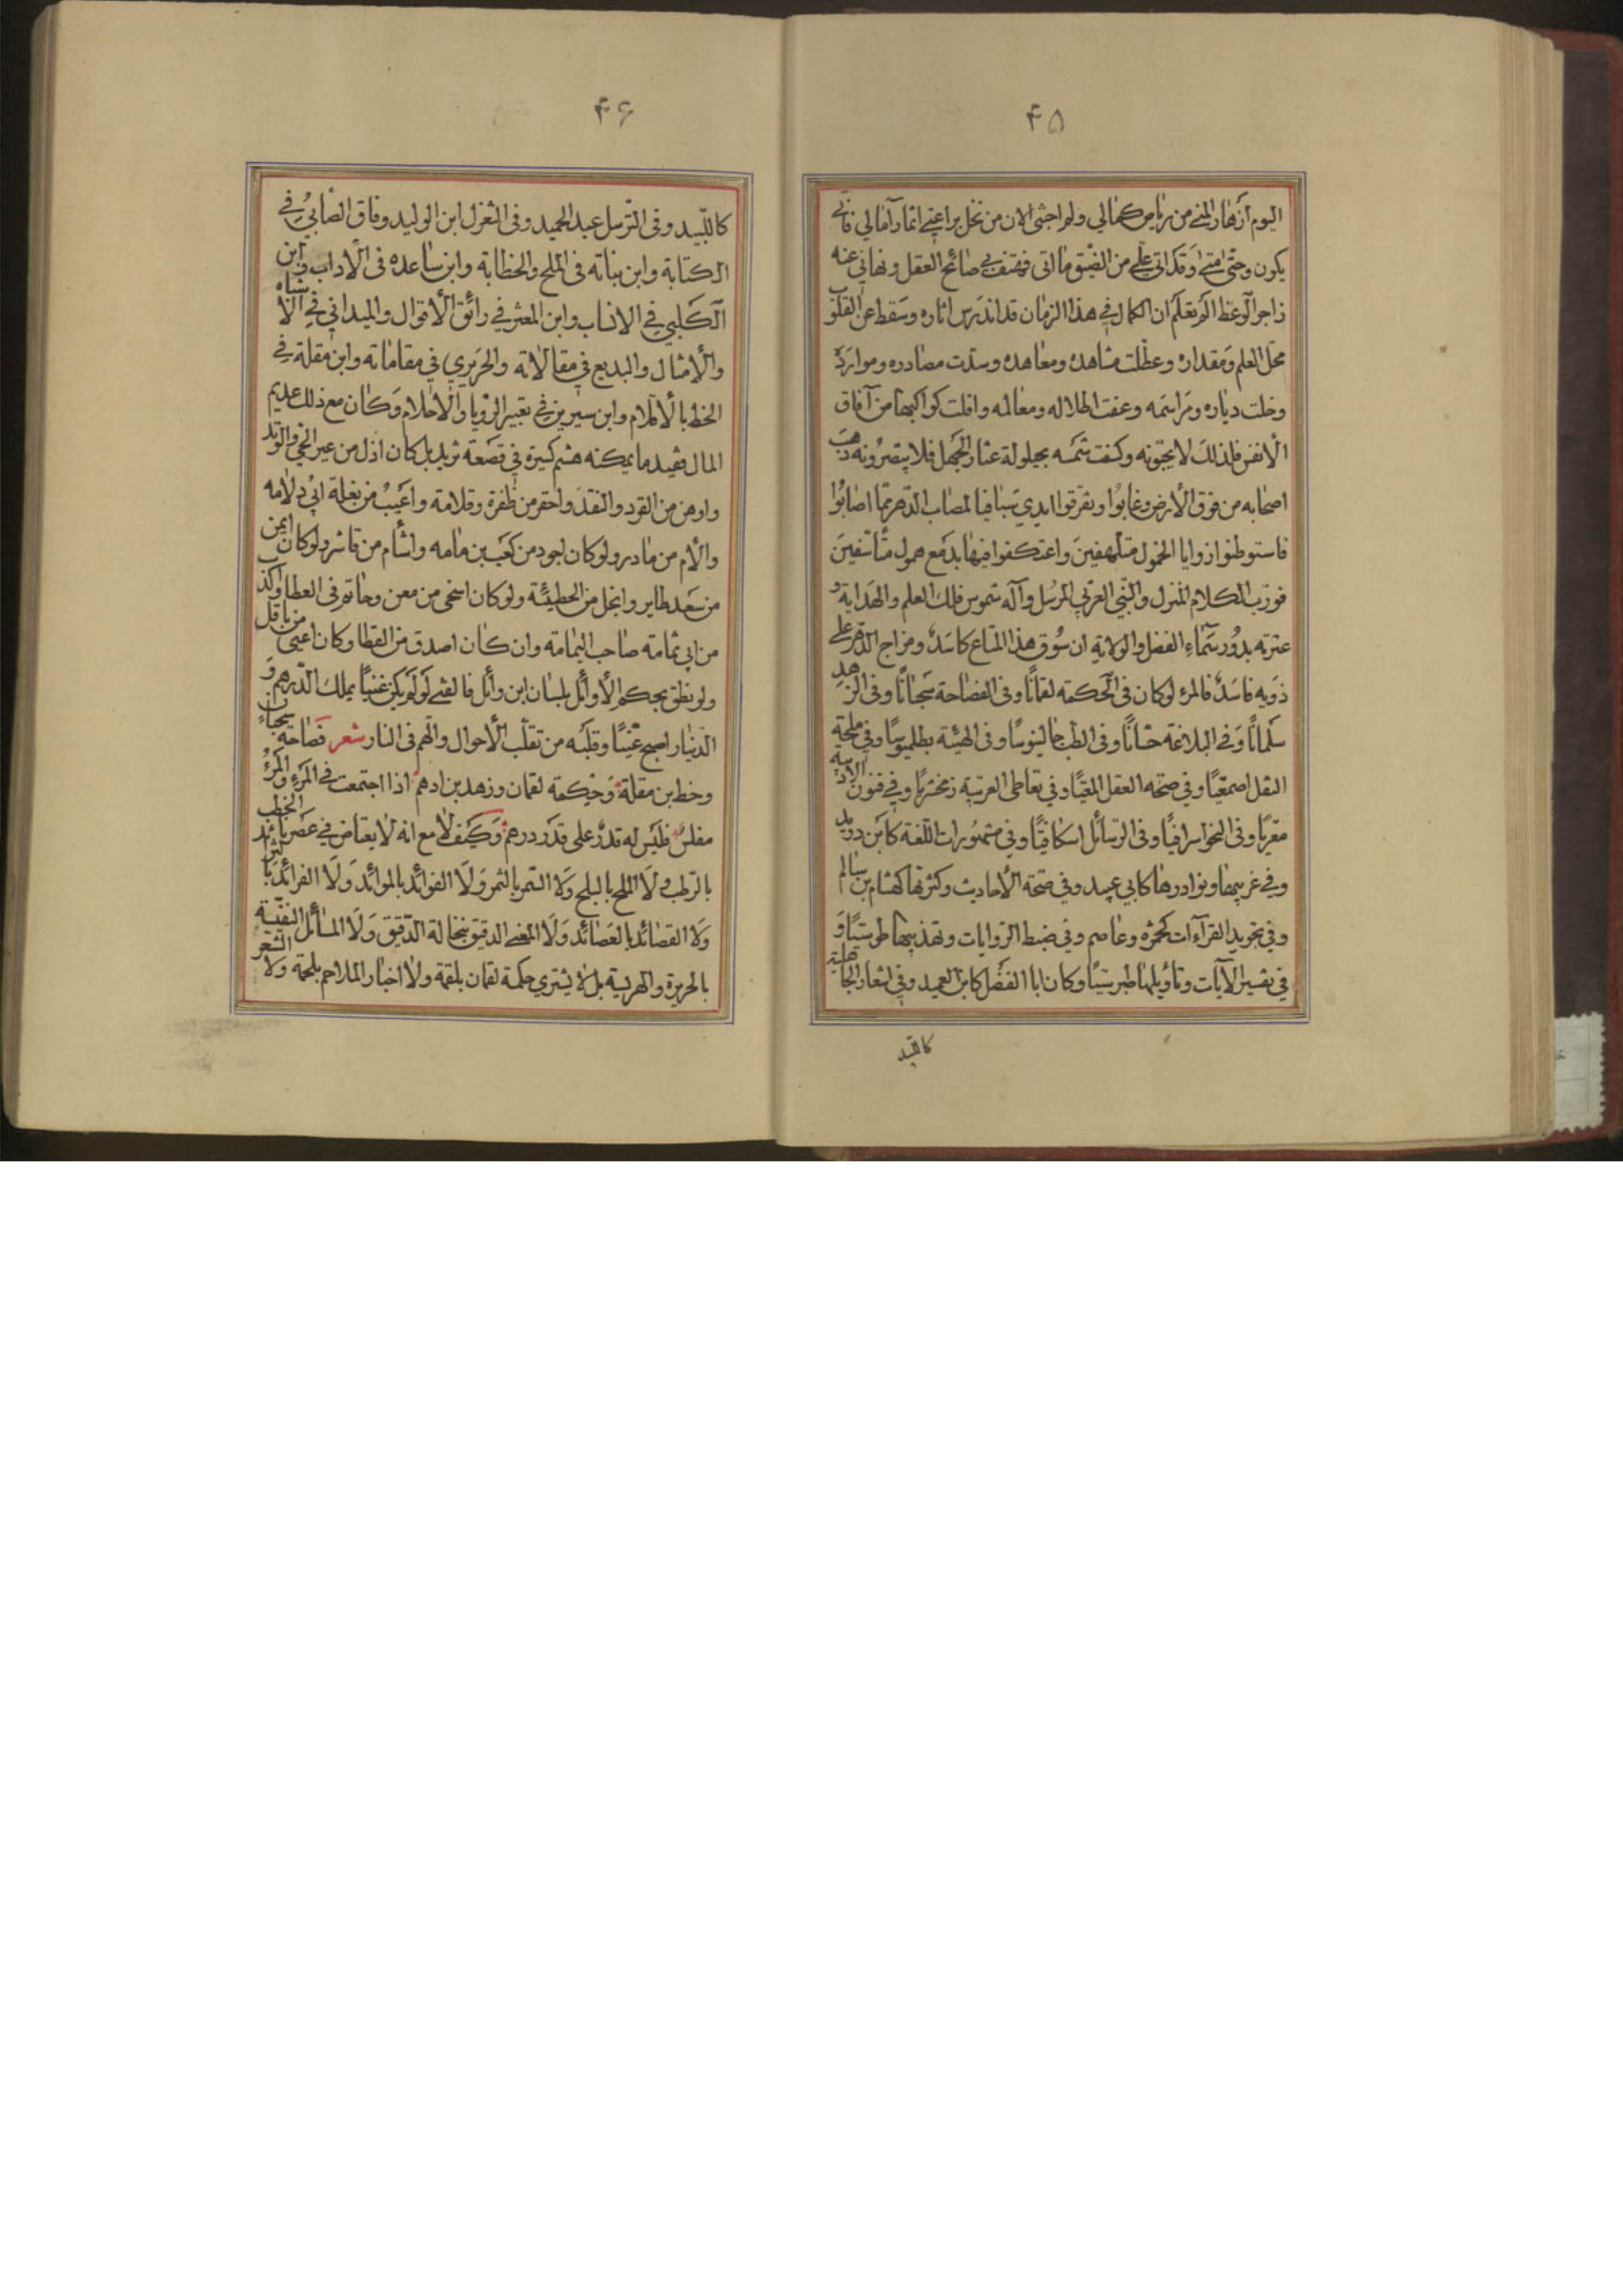 ۴۵
اليوم ازهار المنى من رياض كمالي ولم اجتن الان من نخل براعتي اثمار آمالي فانى
يكون وحتى متى وقد اتى علي من الضيق ما اتى فهتف بي صائح العقل ونهاني عنه
زاجر الوعظ الم تعلم ان الكمال في هذا الزمان قد اندرس اثاره وسقط عن القلوب
محل العلم ومقداره وعطلت مشاهده ومعاهده وسدت مصادره وموارده
وخلت دياره ومراسمه وعفت اطلاله ومعالمه وافلت كواكبها من آفاق
الأنفس فلذلك لا يحبونه وكسفت شمسه بحيلولة عثار الجهل فلا يبصرونه ذهب
اصحابه من فوق الأرض وغابوا وتفرقوا ايدي سبا فيا لمصاب الدهر مما اصابوا
فاستوطنوا زوايا الخمول متلهفين واعتكفوا فيها بدمع همول متأسفين
فورب الكلام المنزل والنبي العربي المرسل وآله شموس فلك العلم والهداية و
عترته بدور سماء الفضل والولاية ان سوق هذا المتاع كاسد ومزاج الدهر على
ذويه فاسد فالمرء لو كان في الحكمة لقمانا وفي الفصاحة سحبانا وفي الزهد
سلمانا وفي البلاغة حسانا وفي الطب جالينوسا وفي الهيئة بطلميوسا وفي ملحة
النقل اصمعيا وفي صحة العقل المعيا وفي تعاطى العربية زمخشريا وفي فنون الادبية
معريا وفي النحو سرافيا وفي الرسائل اسكافيا وفي مشهورات اللغة كابن دريد
وفي غريبها ونوادرها كابي عبيد وفي صحة الأحاديث وكثرتها كهشام بن سالم
وفي تجويد القرآءات كحمزه وعاصم وفي ضبط الروايات وتهذيبها طوسيا و
في تفسير الآيات وتأويلها طبرسيا وكان ابا الفضل كابن العميد وفي اشعار الجاهلية
كاللبيد
۴۶
كاللبيد وفى الترسل عبد الحميد وفى التغزل ابن الوليد وفاق الصابئ في
الكتابة وابن نباته فى الملح والخطابة وابن ساعده فى الآداب وابن
الكلبي في الانساب وابن المعتز في رائق الأقوال والميداني في الاشباه
والأمثال والبديع في مقالاته والحريري في مقاماته وابن مقلة في
الخط بالأقلام وابن سيرين في تعبير الرؤيا والأحلام وكان مع ذلك عديم
المال فقيد ما يمكنه هشم كسيرة في قصعة ثريد بل كان اذل من عير الحي والوتد
واوهن من القرد والنقد واحقر من ظفرة وقلامة واعيب من بغلة ابي دلامه
والأم من مادر ولو كان اجود من كعب بن مامه واشأم من قاشر ولو كان ايمن
من سعد طاير وابخل من الحطيئة ولو كان اسخى من معن وحاتم فى العطا واكذب
من ابي ثمامة صاحب اليمامة وان كان اصدق من القطا وكان اعيى من باقل
ولو نطق بحكم الأوائل بلسان ابن وائل فالفتى لو لم يكن غنيا يملك الدرهم و
الدينار اصبح وقلبه من تقلب الأحوال والهم فى النار شعر فصاحة سحبان
وخط بن مقلة وحكمة لقمان وزهد بن ادهم اذا اجتمعت في المرء والمرء
مفلس فليس له قدر على قدر درهم وكيف لا مع انه لا يعتاض في عصرنا الخطب
بالرطب ولا الملح بالبلح ولا السمر بالثمر ولا الفوائد بالموائد ولا الفرائد
ولا القصائد بالعصائد ولا المعنى الدقيق بنخالة الدقيق ولا المسائل النفيسة
بالحريرة والهريسة بل لا يشتري حكمة لقمان بلقمة ولا اخبار الملاحم بلحمة ولا الشعر